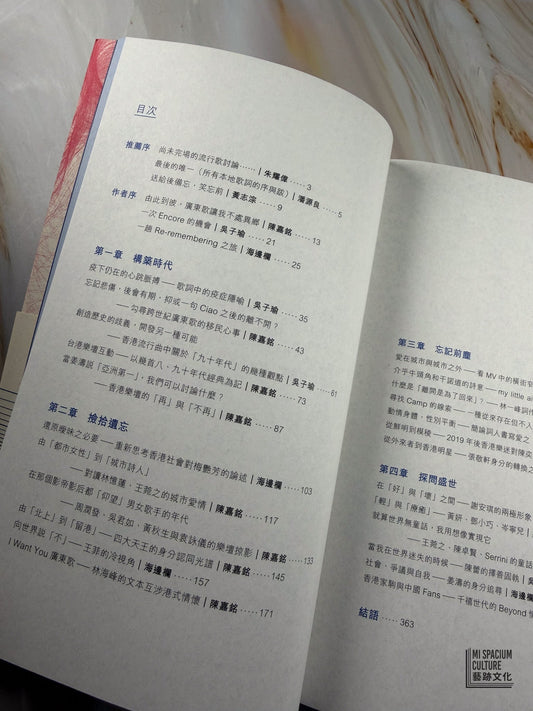 目次
推薦序 尚未完場的流行歌討論⋯⋯｜朱耀偉 ⋯⋯ 3
最後的唯一（所有本地歌詞的序與跋）｜潘源良 ⋯⋯ 5
送給後備忘，笑忘前｜黃志淙 ⋯⋯ 9
作者序 由此到彼，廣東歌讓我不處異鄉｜陳嘉銘 ⋯⋯ 13
一次 Encore 的機會｜吳子瑜 ⋯⋯ 21
一趟 Re-remembering 之旅｜海邊欄 ⋯⋯ 25
第一章 構築時代
疫下仍在的心跳脈搏——歌詞中的疫症隱喻｜吳子瑜 ⋯⋯ 35
忘記悲傷，後會有期，抑或一句 Ciao 之後的離不開？
——勾尋跨世紀廣東歌的移民心事｜陳嘉銘 ⋯⋯ 43
創造歷史的歧義，開發另一種可能
——香港流行曲中關於「九十年代」的幾種觀點｜吳子瑜 ⋯⋯ 61
台港樂壇互動——以幾首八、九十年代經典為記｜陳嘉銘 ⋯⋯ 73
當姜濤説「亞洲第一」，我們可以討論什麼？
——香港樂壇的「再」與「不再」｜陳嘉銘 ⋯⋯ 87
第二章 撿拾遺忘
還原曖昧之必要——重新思考香港社會對梅艷芳的論述｜海邊欄 ⋯⋯ 103
由「都市女性」到「城市詩人」
——對讀林憶蓮、王菀之的城市愛情｜陳嘉銘 ⋯⋯ 117
在那個影帝影后都「仰望」男女歌手的年代
——周潤發、吳君如、黃秋生與袁詠儀的樂壇掠影｜陳嘉銘 ⋯⋯ 133
由「北上」到「留港」——四大天王的身分認同光譜｜陳嘉銘 ⋯⋯ 145
向世界說「不」——王菲的冷視角｜海邊欄 ⋯⋯ 157
I Want You 廣東歌——林海峰的文本互涉港式情懷｜陳嘉銘 ⋯⋯ 171
第三章 忘記前塵
愛在城市與城市之外——看 MV 中的橫街窄
介乎牛頭角和干諾道的詩意——my little ai
什麼是「離開是為了回來」？——林一峰詞作
尋找 Camp 的線索——一種從來存在但不入
動情身體，性別平衡——簡論詞人書寫愛之
從鮮明到模稜——2019 年後香港樂迷對陳奕
從外來者到香港明星——張敬軒身分的轉換之
第四章 探問盛世
在「好」與「壞」之間——謝安琪的兩極形象
「輕」與「療癒」——黃妍、鄧小巧、岑寧兒｜
就算世界無童話，我用想像實現它
——王菀之、陳卓賢、Serrini 的童話
當我在世界迷失的時候——陳蕾的擇善固執｜吳
社會、爭議與自我——姜濤的身分追尋｜海邊
香港家駒與中國 Fans——千禧世代的 Beyond 情
結語 ⋯⋯ 363
MI SPACIUM
CULTURE
藝跡文化